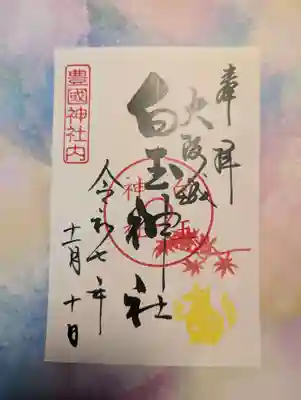 奉拝
大阪城
白玉神社
白玉神社
豊國神社内
令和七年
十一月十日